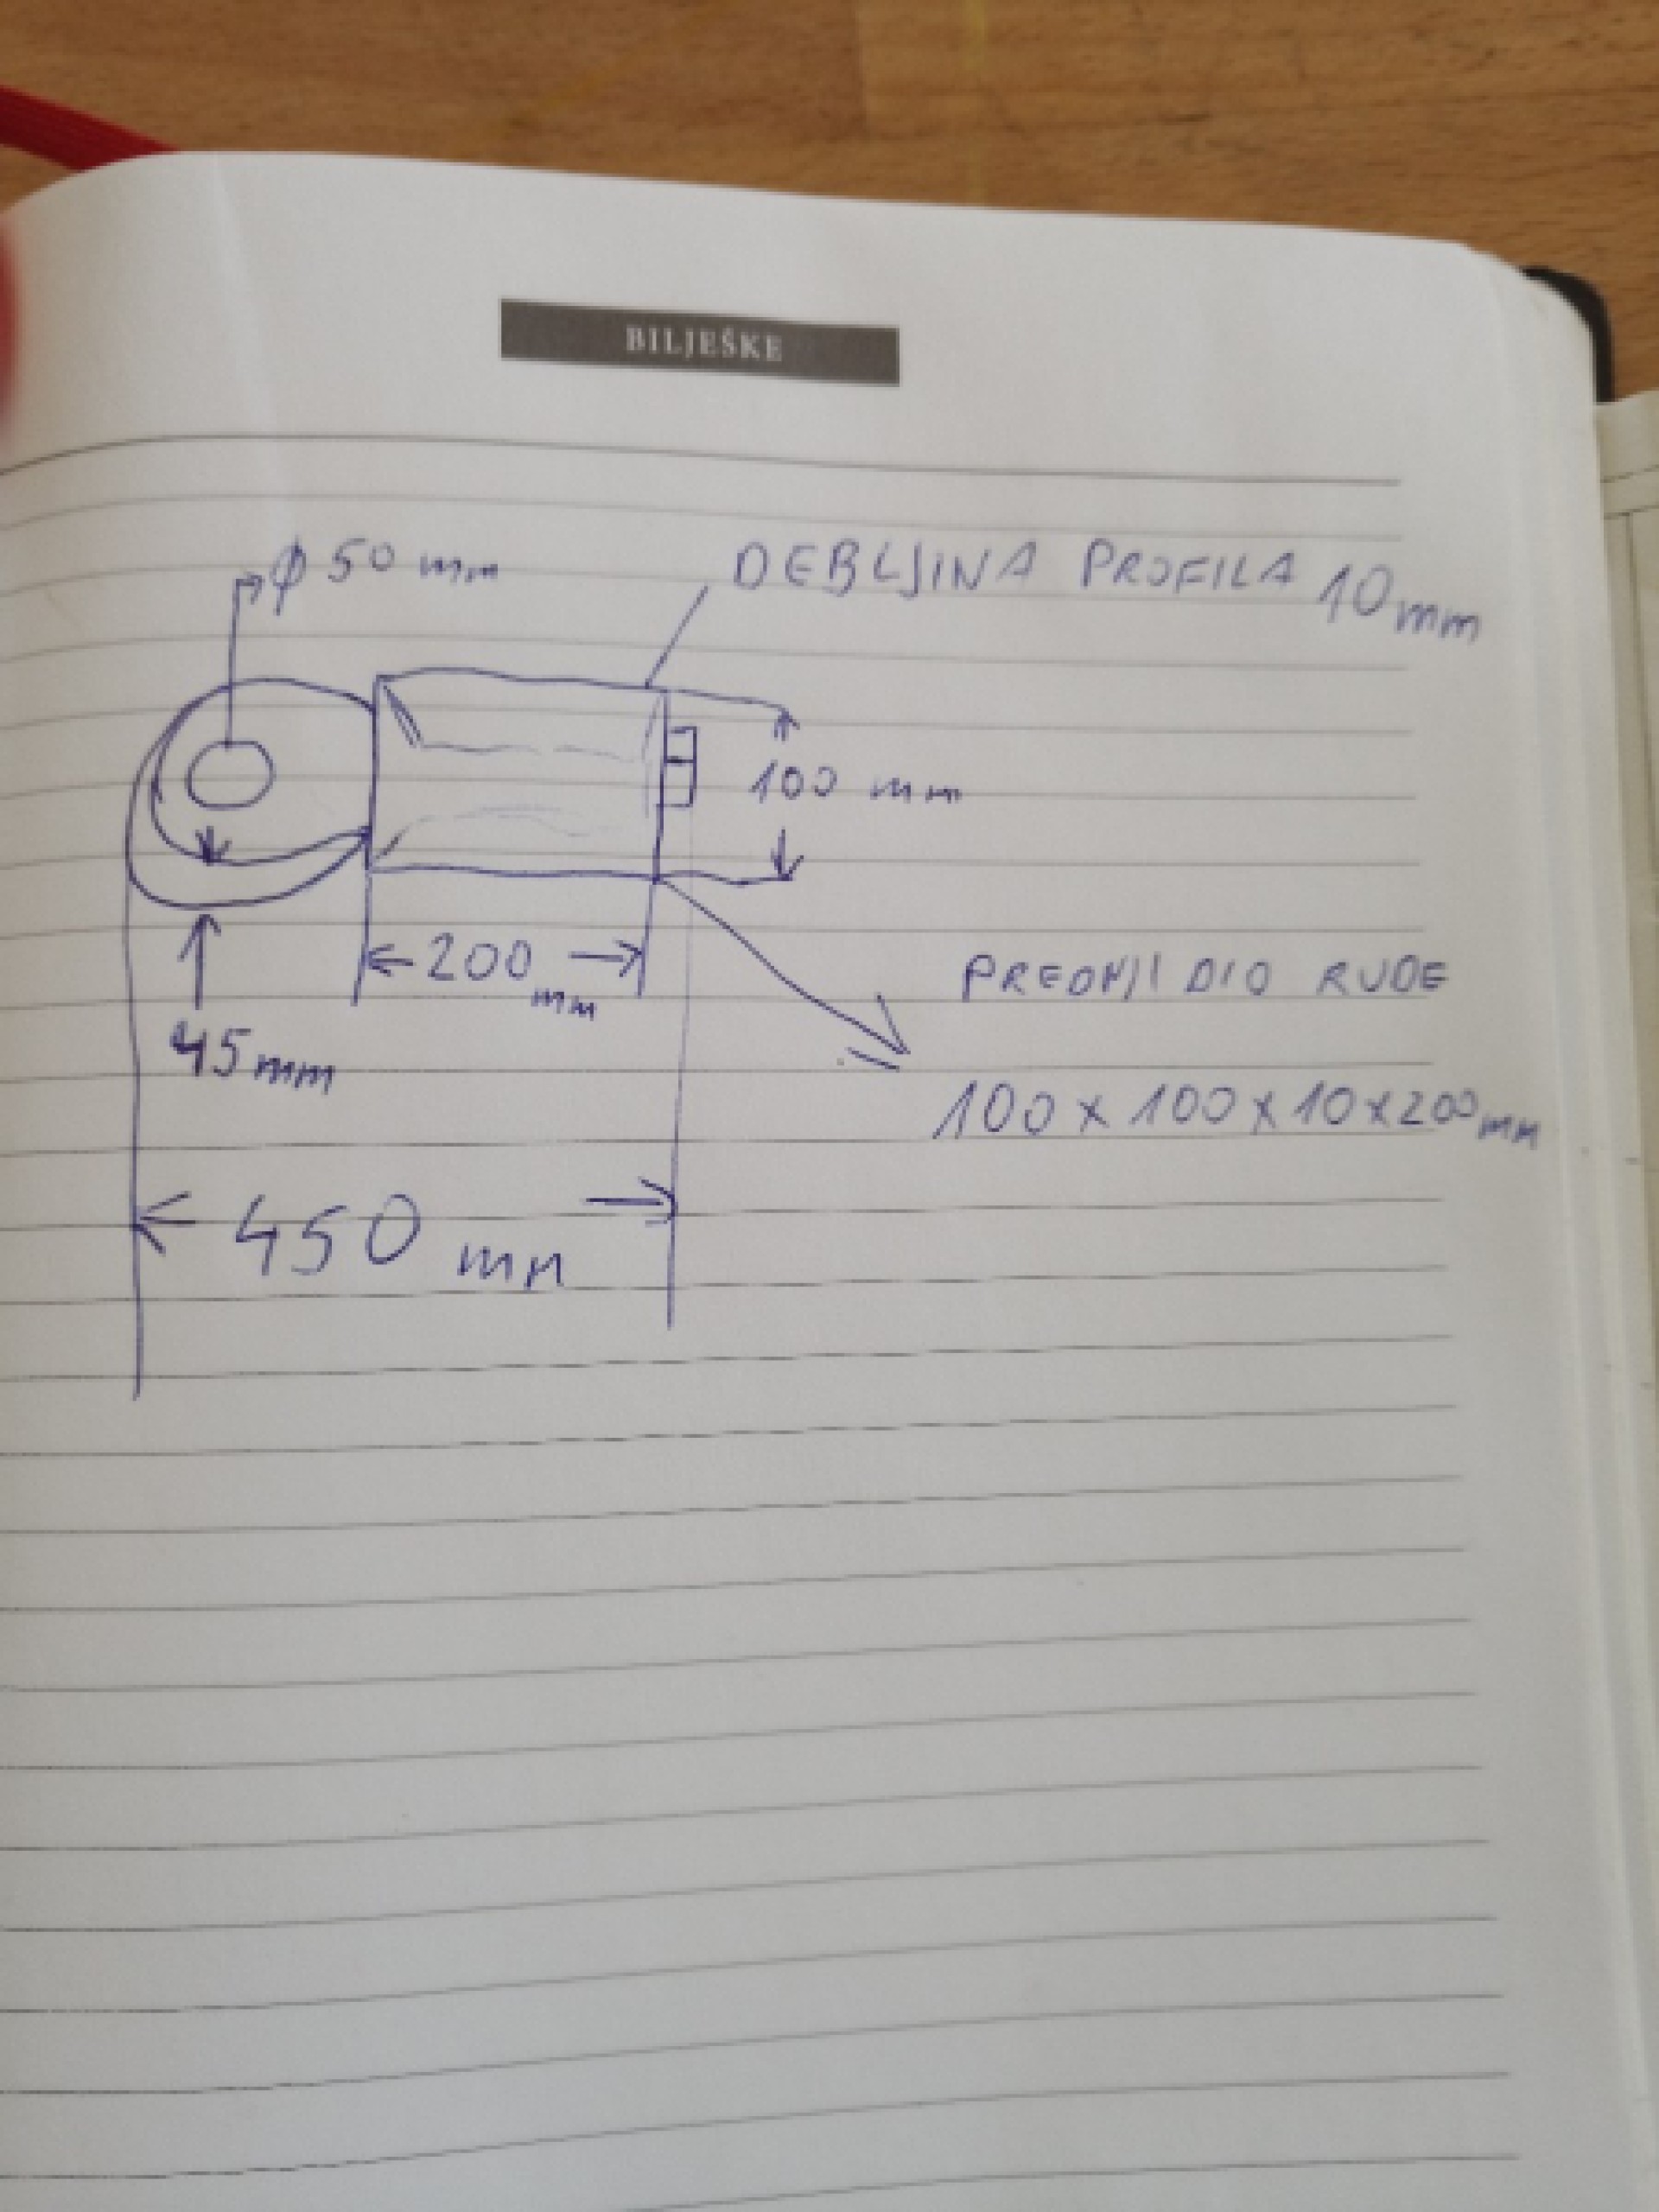 BILJEŠKE
φ 50 mm
DEBLJINA PROFILA 10 mm
100 mm
200 mm
45 mm
PREDNJI DIO RUDE
100 x 100 x 10 x 200 mm
450 mm